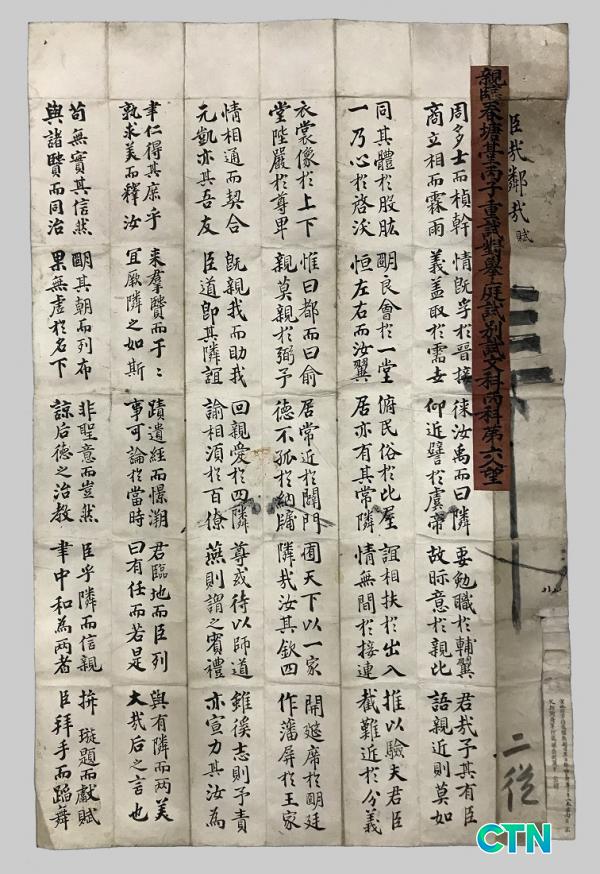 臣哉鄰哉 賦
親臨春塘臺丙子重試對擧庭試別試文科丙科第六人望
周多士而楨幹
商立相而霖雨
同其體於股肱
一乃心於啓沃
衣裳像於上下
堂陛嚴於尊卑
情相通而契合
元凱亦其吾友
聿仁得其庶乎
孰求美而釋汝
苟無實其信然
與諸賢而同治
情旣孚於晉接
義盖取於需士
明良會於一堂
恒左右而汝翼
惟曰都而曰俞
親莫親於弼予
旣親我而助我
臣道卽其隣誼
来羣賢而于〻
宜厥隣之如斯
明其朝而列布
果無虛於名下
徠汝禹而曰隣
仰近譬於虞帝
俯民俗於比屋
居亦有其常隣
居常近於闢門
德不孤於納牖
回親愛於四隣
諭相須於百僚
蹟遺経而憬溯
事可論於當時
非聖意而豈然
諒后德之治教
要勉職於輔翼
故眎意於親比
誼相扶於出入
情無間於接連
囿天下以一家
隣哉汝其欽四
尊或待以師道
燕則謂之賓禮
君臨地而臣列
曰有任而若是
臣乎隣而信親
聿中和為兩者
君哉予其有臣
語親近則莫如
推以驗夫君臣
截難近於分義
開筵席於明廷
作藩屏於王家
雖徯志則予責
亦宣力其汝為
與有隣而兩美
大哉后之言也
拚璇題而献賦
臣拜手而蹈舞
二從
CTN